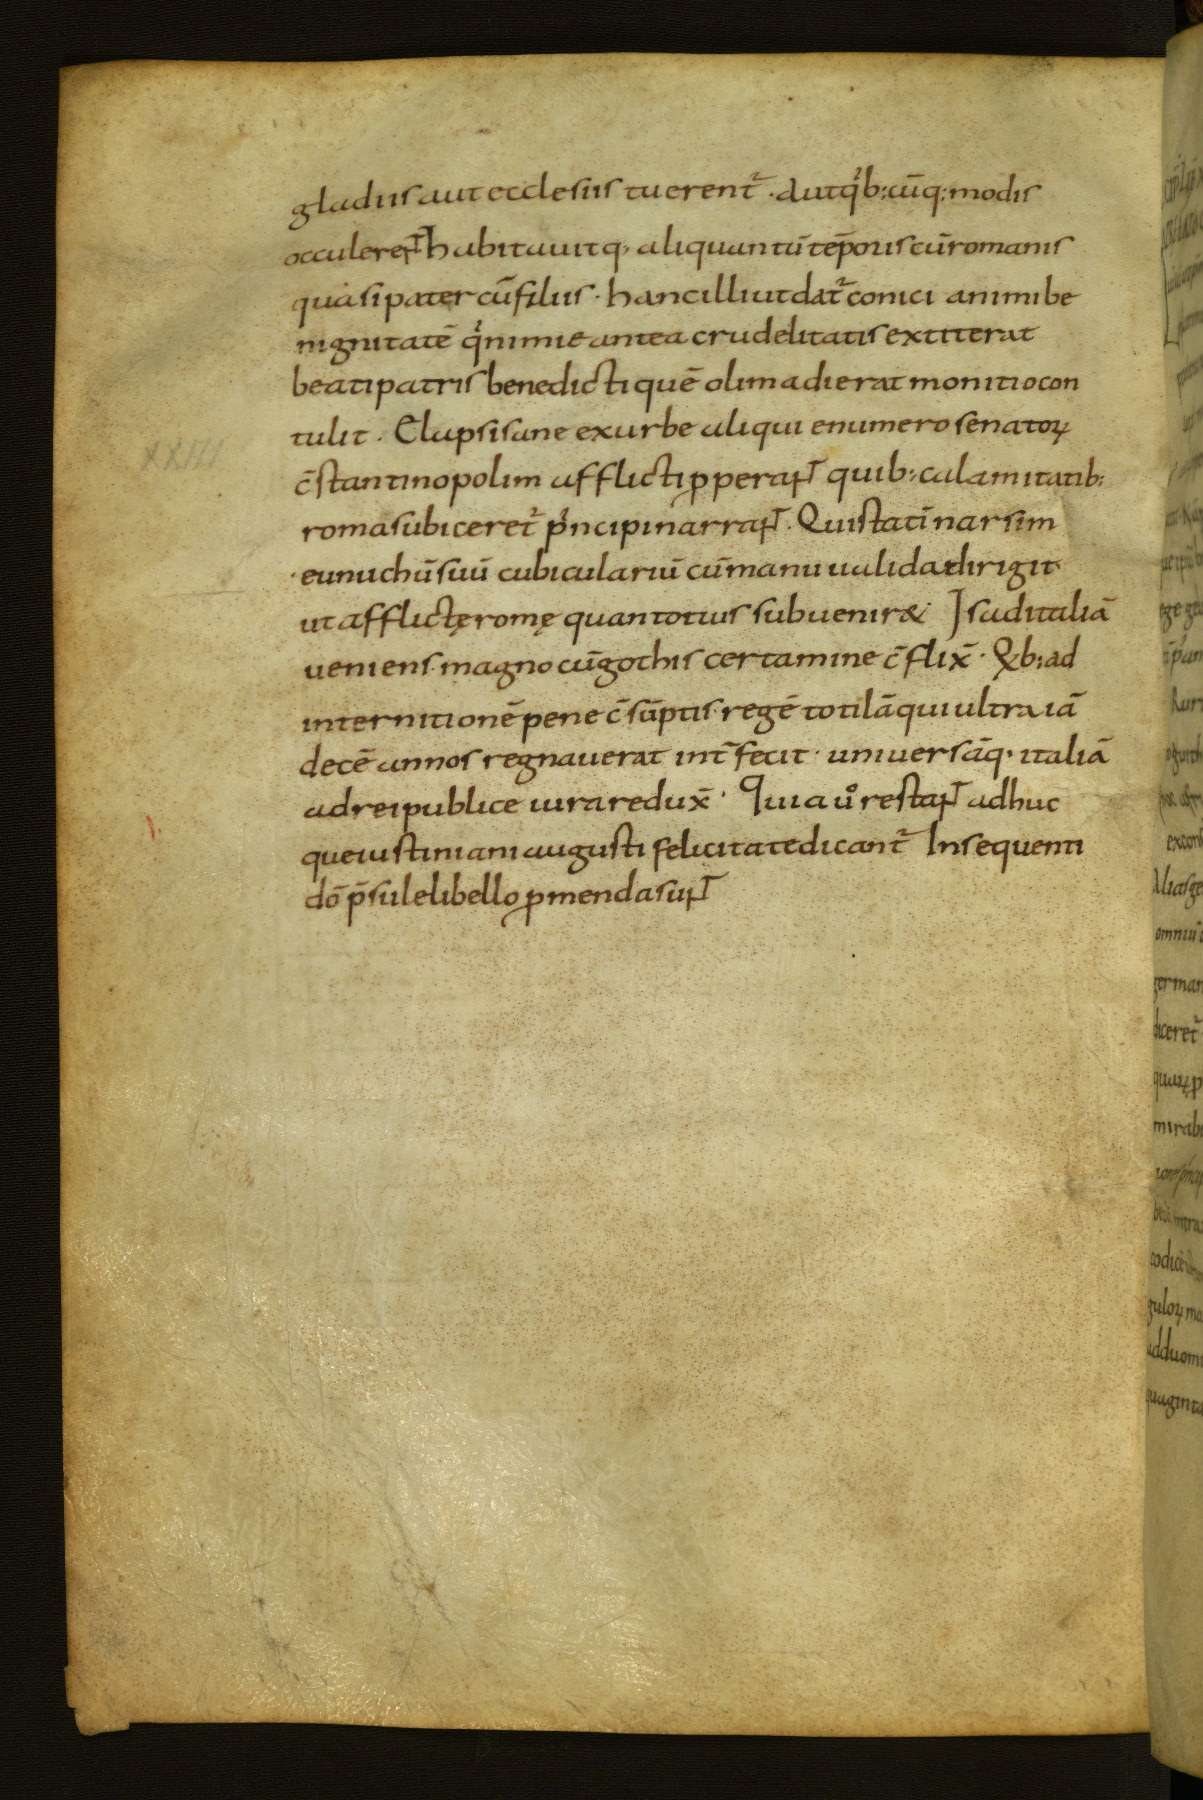 gladiis aut ecclesiis tuerent᷑ · Aut qͥb; cūq; modis
occulerent᷑ habitauitq; aliquantū tēporis cū romanis
quasi pater cū filiis · hanc illi ut dat᷑ conici animi be
nignitatē qͥ nimie antea crudelitatis extiterat
beati patris benedicti quē olim adierat monitio con
tulit · Elapsi sane ex urbe aliqui e numero senatoꝝ
c̄stantinopolim afflicti ꝓperaɼ̄ quib; calamitatib;
roma subiceret᷑ pͥncipi narraɼ̄ · Qui statī narsim
eunuchū suū cubiculariū cū manu ualida dirigit ·
ut afflictę romę quantotius subueniret Is ad italiā
ueniens magno cū gothis certamine c̄flix̄ · Qͥb; ad
internitionē pene c̄sūptis · regē totilā qui ultra iā
decē annos regnauerat int̄fecit · uniuersāq; italiā
ad rei publice iura redux̄ · Quia uͦ restaɼ̄ adhuc
que iustiniani augusti felicitate dicant᷑ In sequenti
dō p̄sule libello ꝓmenda suɼ̄
XXIII